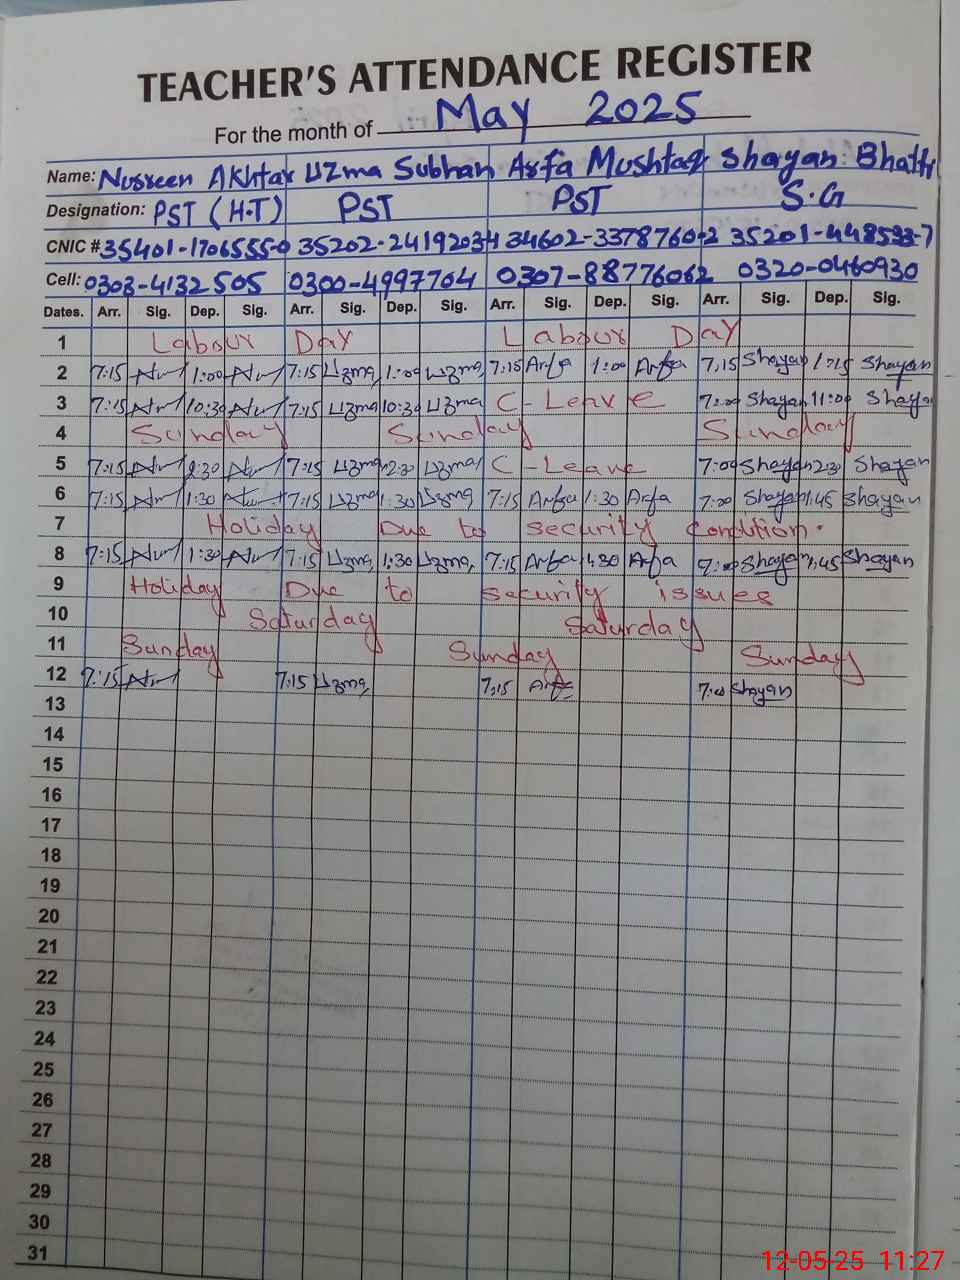 TEACHER'S ATTENDANCE REGISTER
For the month of May 2025
Name: Nusreen Akhtar Uzma Subhan Arfa Mushtaq Shayan Bhatti
Designation: PST (H.T) PST PST S.G
CNIC # 35401-1706555-0 35202-24192034 34602-3378760-2 35201-448533-7
Cell: 0303-4132505 0300-4997704 0307-88776062 0320-0460930
Dates. Arr. Sig. Dep. Sig. Arr. Sig. Dep. Sig. Arr. Sig. Dep. Sig. Arr. Sig. Dep. Sig.
1 Labour Day Labour Day
2 7:15 1:00 7:15 Uzma 1:00 Uzma 7:15 Arfa 1:00 Arfa 7:15 Shayan 1:15 Shayan
3 7:15 10:30 7:15 Uzma 10:30 Uzma C-Leave 7:00 Shayan 11:00 Shayan
4 Sunday Sunday Sunday
5 7:15 2:30 7:15 Uzma 2:30 Uzma C-Leave 7:00 Shayan 2:30 Shayan
6 7:15 1:30 7:15 Uzma 1:30 Uzma 7:15 Arfa 1:30 Arfa 7:00 Shayan 1:45 Shayan
7 Holiday Due to security condition.
8 7:15 1:30 7:15 Uzma 1:30 Uzma 7:15 Arfa 1:30 Arfa 7:00 Shayan 1:45 Shayan
9 Holiday Due to security issues
10 Saturday Saturday
11 Sunday Sunday Sunday
12 7:15 7:15 Uzma 7:15 Arfa 7:00 Shayan
13
14
15
16
17
18
19
20
21
22
23
24
25
26
27
28
29
30
31
12-05-25 11:27